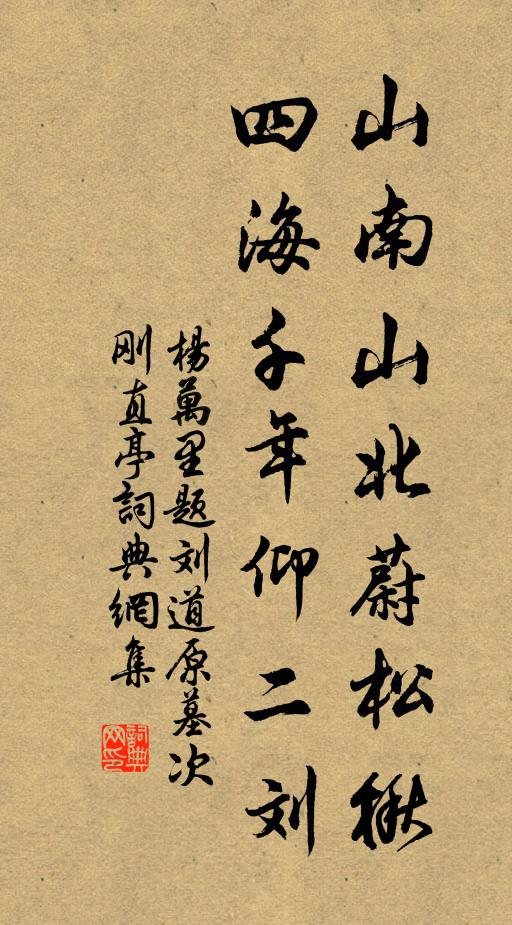 山南山北蔚松楸
四海千年仰二刘
杨萬里题刘道原墓次
刚直亭詞典網集
詞典网印